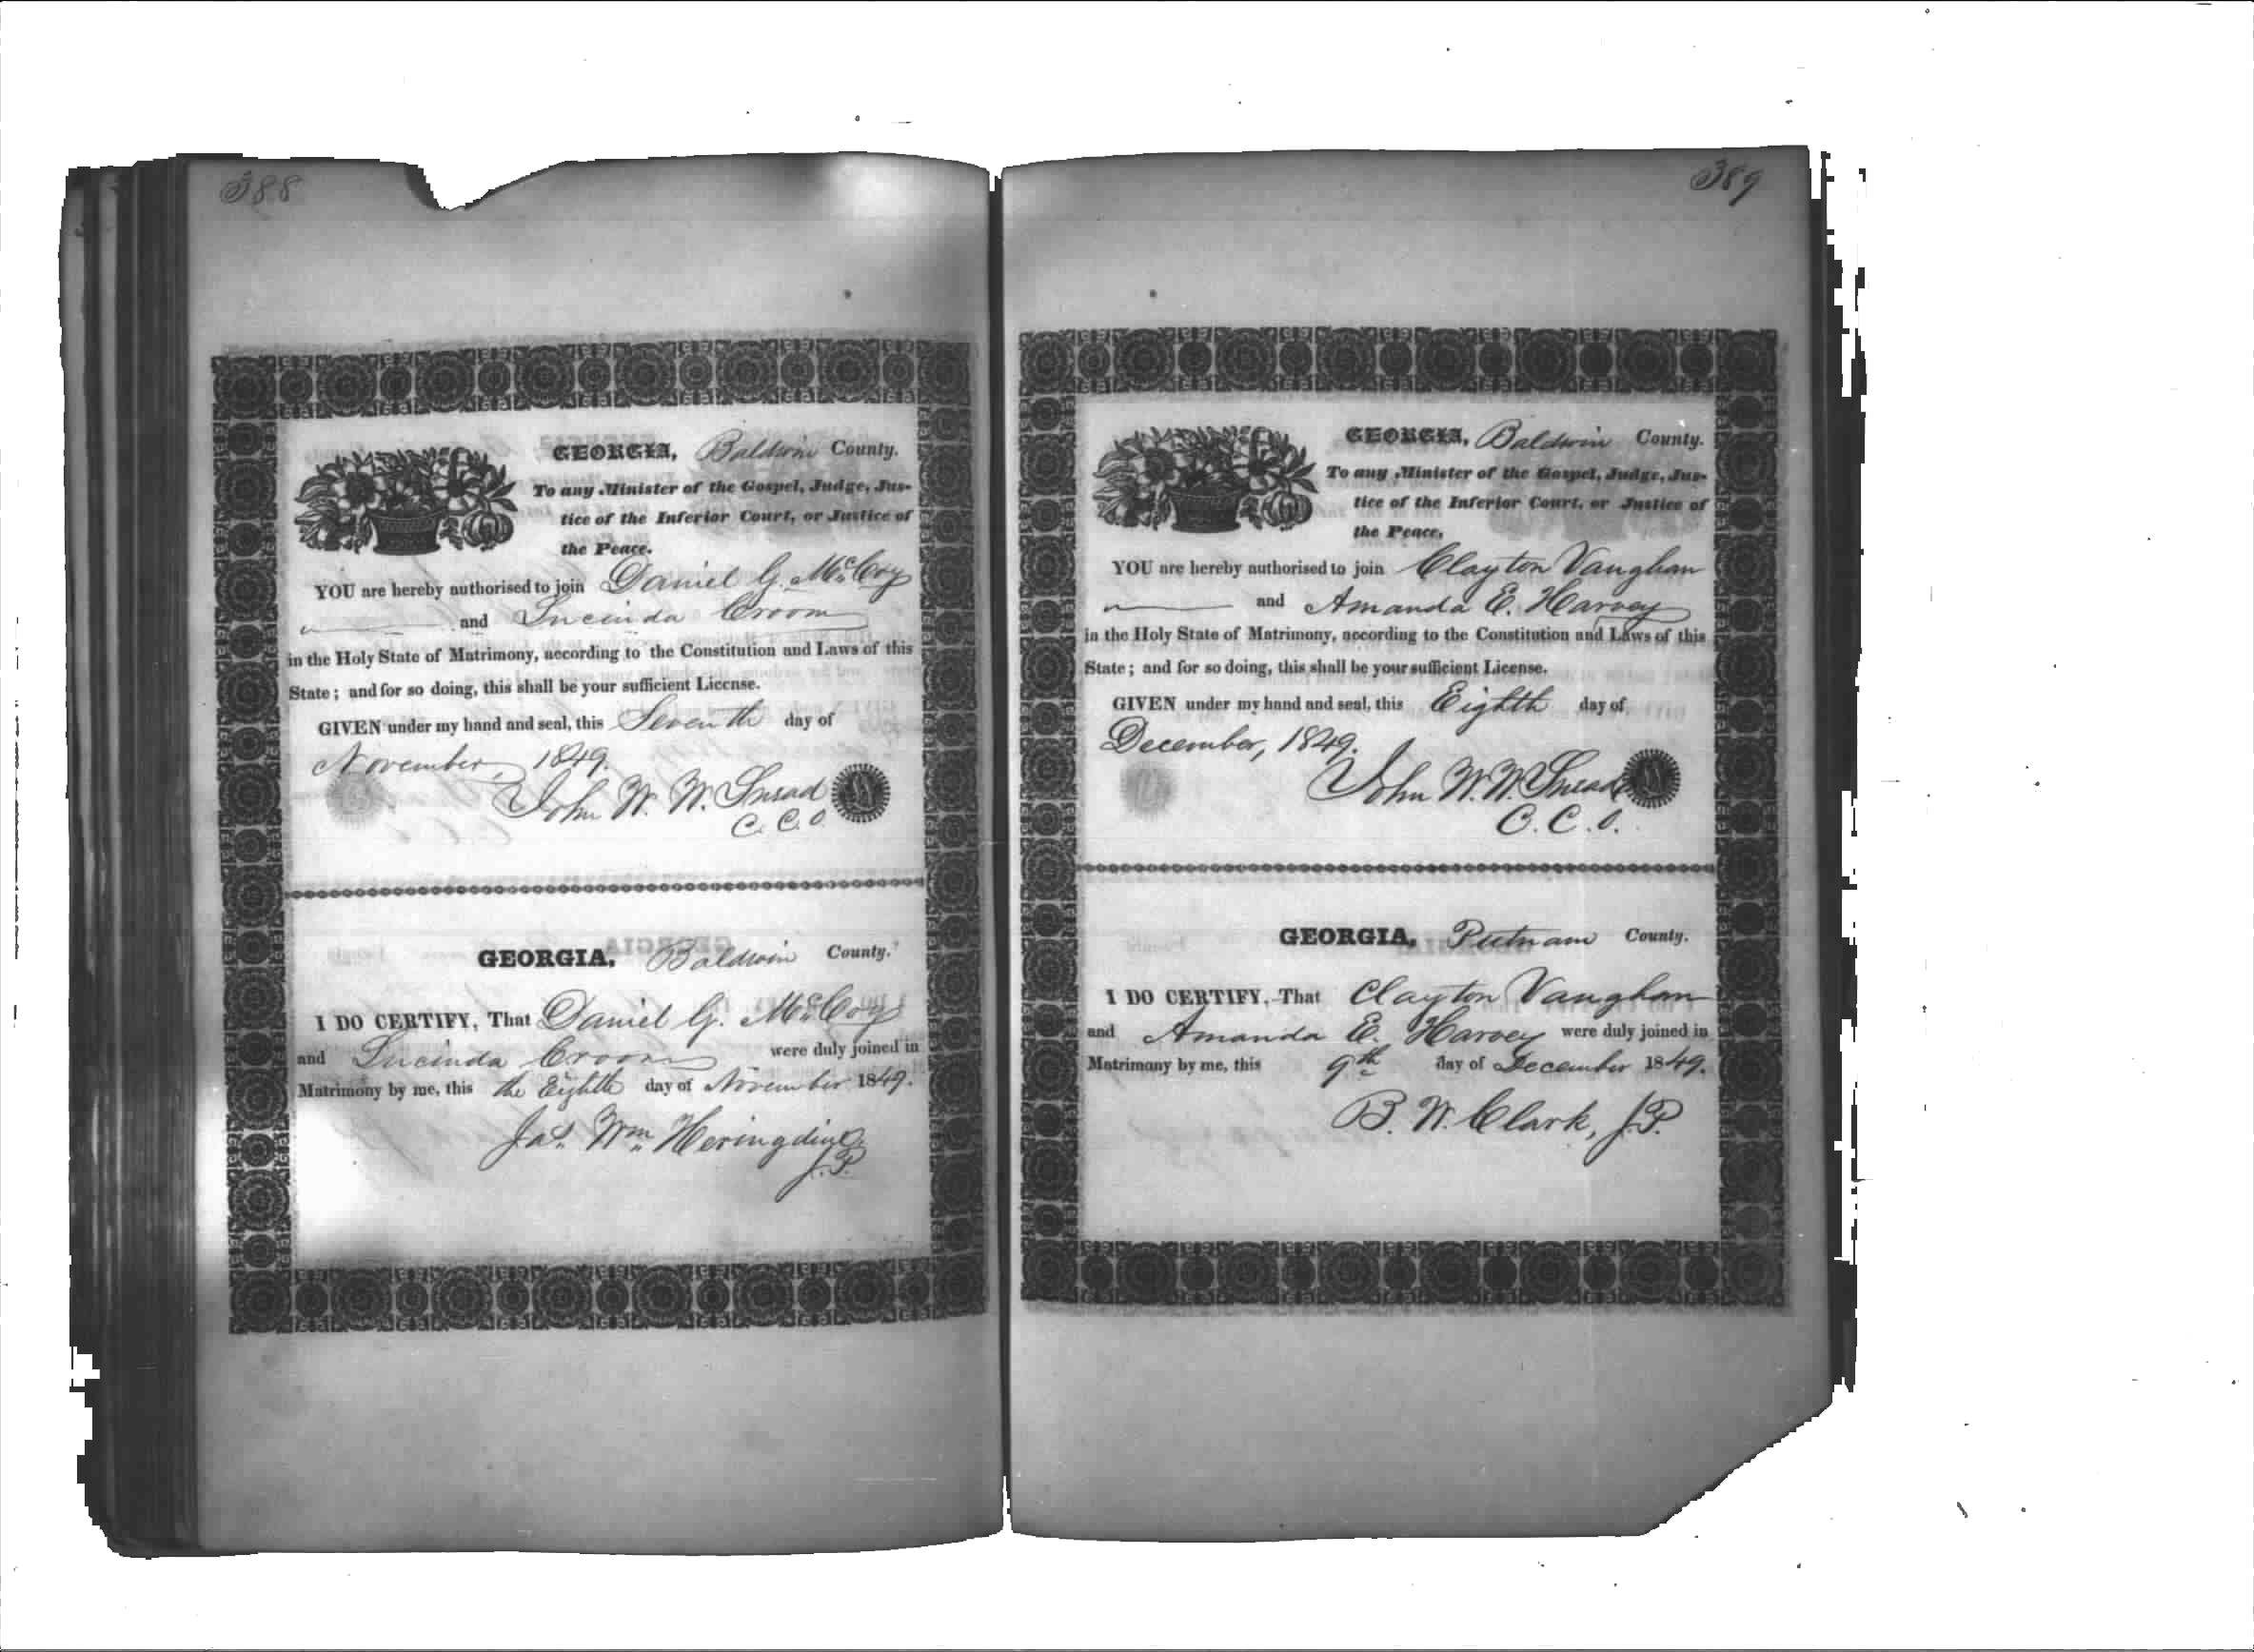 388
GEORGIA, Baldwin County.
To any Minister of the Gospel, Judge, Jus-
tice of the Inferior Court, or Justice of
the Peace.
YOU are hereby authorised to join Daniel G. McCoy
and Lucinda Croom
in the Holy State of Matrimony, according to the Constitution and Laws of this
State; and for so doing, this shall be your sufficient License.
GIVEN under my hand and seal, this Seventh day of
November, 1849.
John W. W. Snead
C. C. O.
GEORGIA, Baldwin County.
I DO CERTIFY, That Daniel G. McCoy
and Lucinda Croom were duly joined in
Matrimony by me, this the Eighth day of November 1849.
Jas. Wm. Heringdine
J. P.
389
GEORGIA, Baldwin County.
To any Minister of the Gospel, Judge, Jus-
tice of the Inferior Court, or Justice of
the Peace,
YOU are hereby authorised to join Clayton Vaughan
and Amanda E. Harvey
in the Holy State of Matrimony, according to the Constitution and Laws of this
State; and for so doing, this shall be your sufficient License.
GIVEN under my hand and seal, this Eighth day of
December, 1849.
John W. W. Snead
C. C. O.
GEORGIA, Putnam County.
I DO CERTIFY, That Clayton Vaughan
and Amanda E. Harvey were duly joined in
Matrimony by me, this 9th day of December 1849.
B. W. Clark, J.P.